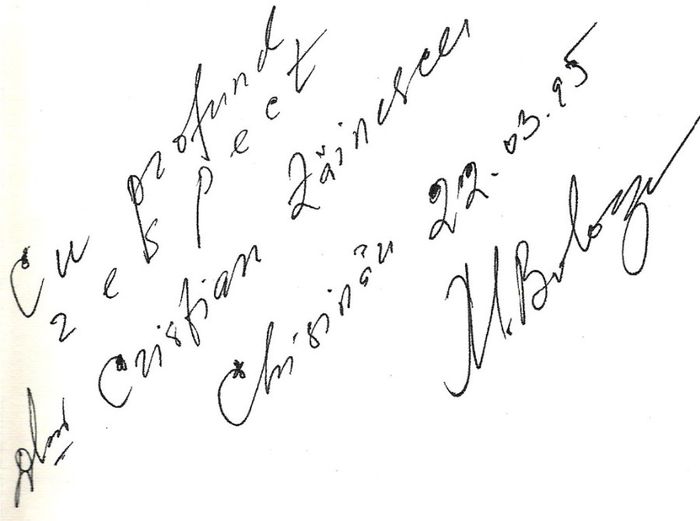 Cu profund
respect
dlui Cristian Zăinescu
Chisinău 22.03.95
M. Bologa